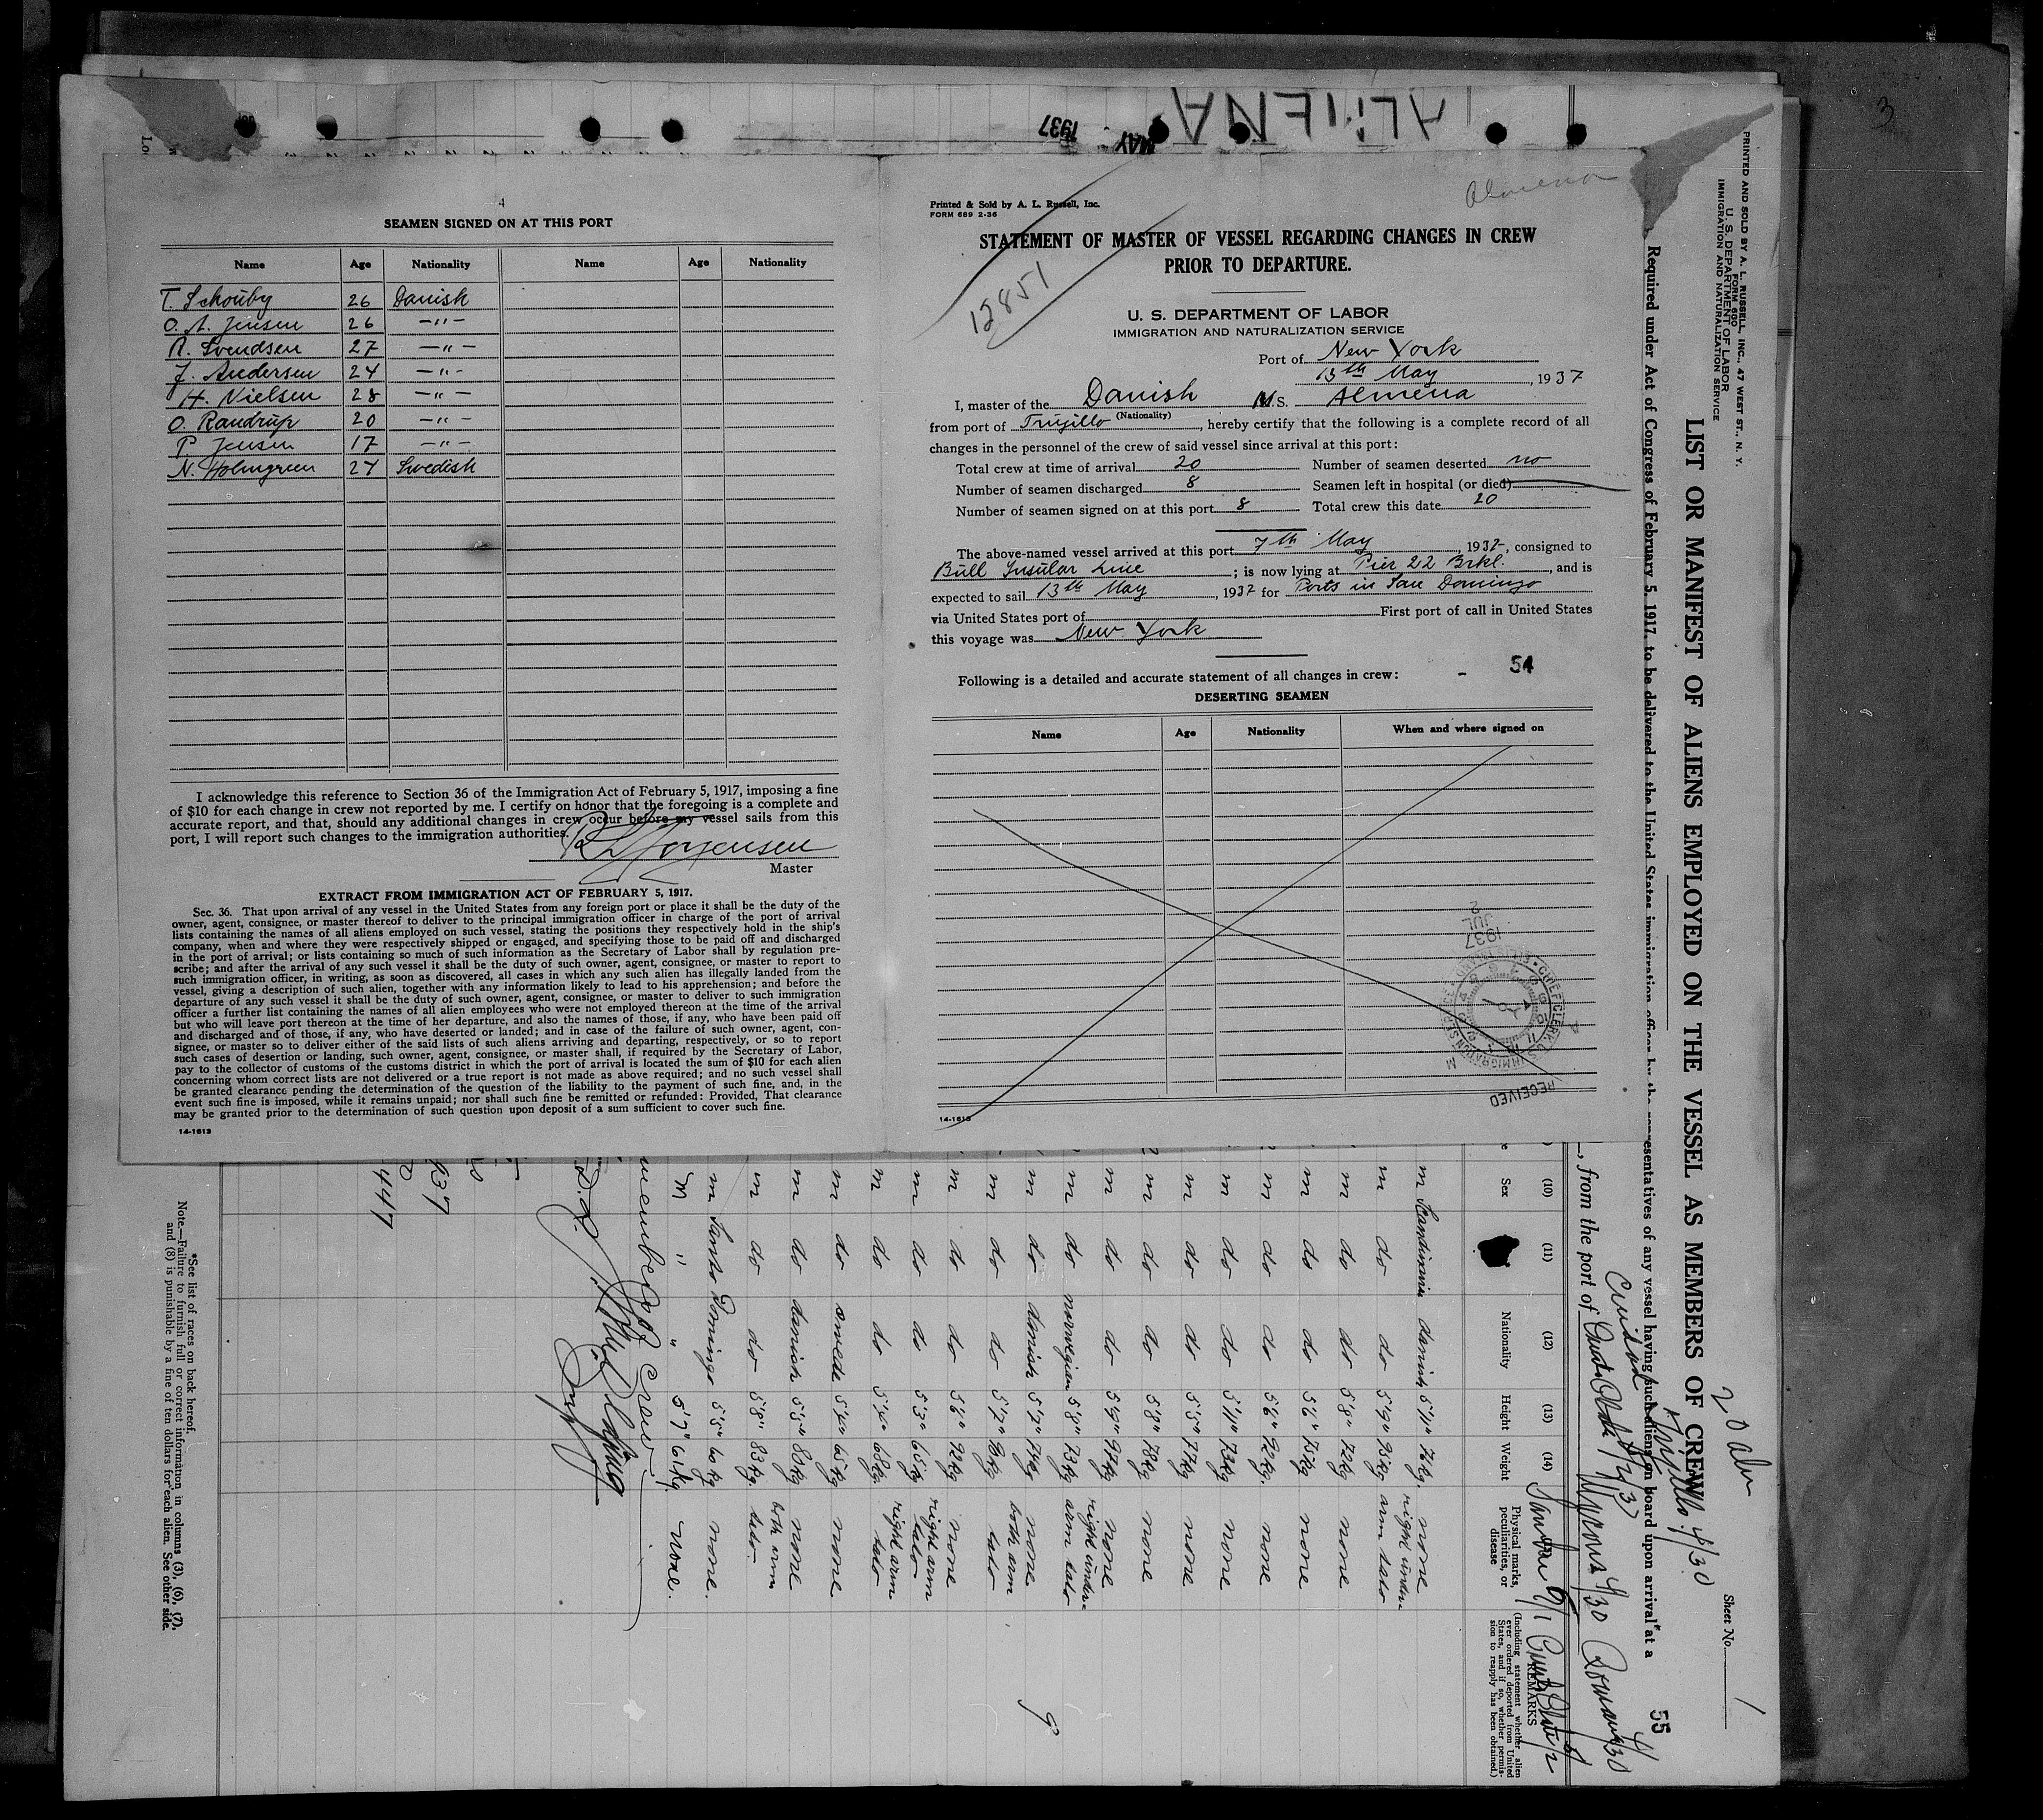 ALMENA
MAY 1937
3
4
SEAMEN SIGNED ON AT THIS PORT
Name Age Nationality Name Age Nationality
T. Schouby 26 Danish
O. A. Jensen 26 —"—
R. Svendsen 27 —"—
J. Andersen 24 —"—
H. Nielsen 28 —"—
O. Randrup 20 —"—
P. Jensen 17 —"—
N. Holmgreen 27 Swedish
I acknowledge this reference to Section 36 of the Immigration Act of February 5, 1917, imposing a fine
of $10 for each change in crew not reported by me. I certify on honor that the foregoing is a complete and
accurate report, and that, should any additional changes in crew occur before my vessel sails from this
port, I will report such changes to the immigration authorities.
Jorgensen
Master
EXTRACT FROM IMMIGRATION ACT OF FEBRUARY 5, 1917.
Sec. 36. That upon arrival of any vessel in the United States from any foreign port or place it shall be the duty of the
owner, agent, consignee, or master thereof to deliver to the principal immigration officer in charge of the port of arrival
lists containing the names of all aliens employed on such vessel, stating the positions they respectively hold in the ship's
company, when and where they were respectively shipped or engaged, and specifying those to be paid off and discharged
in the port of arrival; or lists containing so much of such information as the Secretary of Labor shall by regulation pre-
scribe; and after the arrival of any such vessel it shall be the duty of such owner, agent, consignee, or master to report to
such immigration officer, in writing, as soon as discovered, all cases in which any such alien has illegally landed from the
vessel, giving a description of such alien, together with any information likely to lead to his apprehension; and before the
departure of any such vessel it shall be the duty of such owner, agent, consignee, or master to deliver to such immigration
officer a further list containing the names of all alien employees who were not employed thereon at the time of the arrival
but who will leave port thereon at the time of her departure, and also the names of those, if any, who have been paid off
and discharged and of those, if any, who have deserted or landed; and in case of the failure of such owner, agent, con-
signee, or master so to deliver either of the said lists of such aliens arriving and departing, respectively, or so to report
such cases of desertion or landing, such owner, agent, consignee, or master shall, if required by the Secretary of Labor,
pay to the collector of customs of the customs district in which the port of arrival is located the sum of $10 for each alien
concerning whom correct lists are not delivered or a true report is not made as above required; and no such vessel shall
be granted clearance pending the determination of the question of the liability to the payment of such fine, and, in the
event such fine is imposed, while it remains unpaid; nor shall such fine be remitted or refunded: Provided, That clearance
may be granted prior to the determination of such question upon deposit of a sum sufficient to cover such fine.
14-1613
Almena
Printed & Sold by A. L. Russell, Inc.
FORM 689 2-36
STATEMENT OF MASTER OF VESSEL REGARDING CHANGES IN CREW
PRIOR TO DEPARTURE.
12851
U. S. DEPARTMENT OF LABOR
IMMIGRATION AND NATURALIZATION SERVICE
Port of New York
13th May, 1937
I, master of the Danish M.S. Almena
(Nationality)
from port of Trujillo, hereby certify that the following is a complete record of all
changes in the personnel of the crew of said vessel since arrival at this port:
Total crew at time of arrival 20 Number of seamen deserted no
Number of seamen discharged 8 Seamen left in hospital (or died)
Number of seamen signed on at this port 8 Total crew this date 20
The above-named vessel arrived at this port 7th May, 1937, consigned to
Bull Insular Line; is now lying at Pier 22 Brkl., and is
expected to sail 13th May, 1937 for Ports in San Domingo
via United States port of First port of call in United States
this voyage was New York
Following is a detailed and accurate statement of all changes in crew: - 54
DESERTING SEAMEN
Name Age Nationality When and where signed on
1937 JUL 2
CHIEF CLERK U.S. IMMIGRATION SERVICE
RECEIVED
14-1613
PRINTED AND SOLD BY A. L. RUSSELL, INC., 47 WEST ST., N. Y.
FORM 680
U. S. DEPARTMENT OF LABOR
IMMIGRATION AND NATURALIZATION SERVICE
Sheet No. 1
LIST OR MANIFEST OF ALIENS EMPLOYED ON THE VESSEL AS MEMBERS OF CREW
Required under Act of Congress of February 5, 1917, to be delivered to the United States immigration officer by the representatives of any vessel having such aliens on board upon arrival at a
55
Ciudad Trujillo 4/30
, from the port of
(10) (11) (12) (13) (14)
Sex Nationality Height Weight Physical marks, peculiarities, or disease
REMARKS
(Including statement whether alien ever ordered deported from United States, and if so, whether permission to reapply has been obtained.)
m Scandinavia danish 5'11" 76kg. none
m do do 5'9"
m do do 5'8" none
m do do 5'6" none
m do do 5'6" none
m do do 5'11" 73kg none
m do do none
m do do 5'8" 78kg none
m do do none
m do norwegian 5'8" 73kg
m do danish 5'7" none
m do do 5'7"
m do do 5'6" none
m do do 5'3" 65kg right arm tato
m do do 5'4" 68kg right arm tato
m do swede 5'4" 65kg none
m do danish 5'5" 80kg none
m do do 5'8" 83kg. both arm tato.
m Santo Domingo 5'5" 60kg none.
M " " 5'7" 61kg. none.
members of crew
937
447
*See list of races on back hereof.
Note.—Failure to furnish full or correct information in columns (3), (6), (7),
and (8) is punishable by a fine of ten dollars for each alien. See other side.